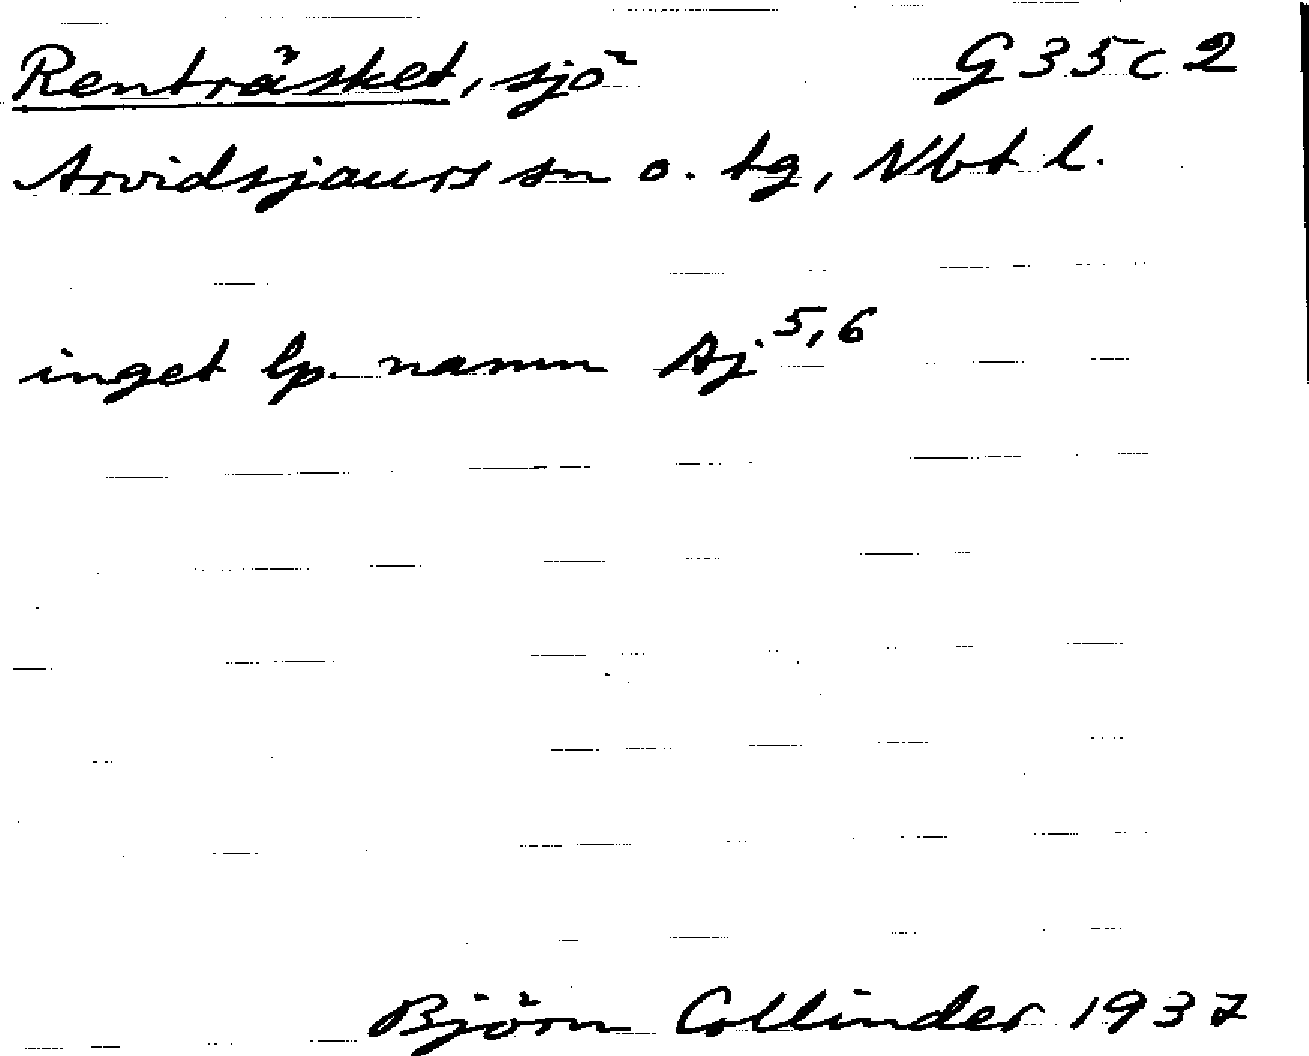 Renträsket, sjö G35c2
Arvidsjaurs sn o. tg, Nbt l.
inget lp. namn Aj.5,6
Björn Collinder 1937